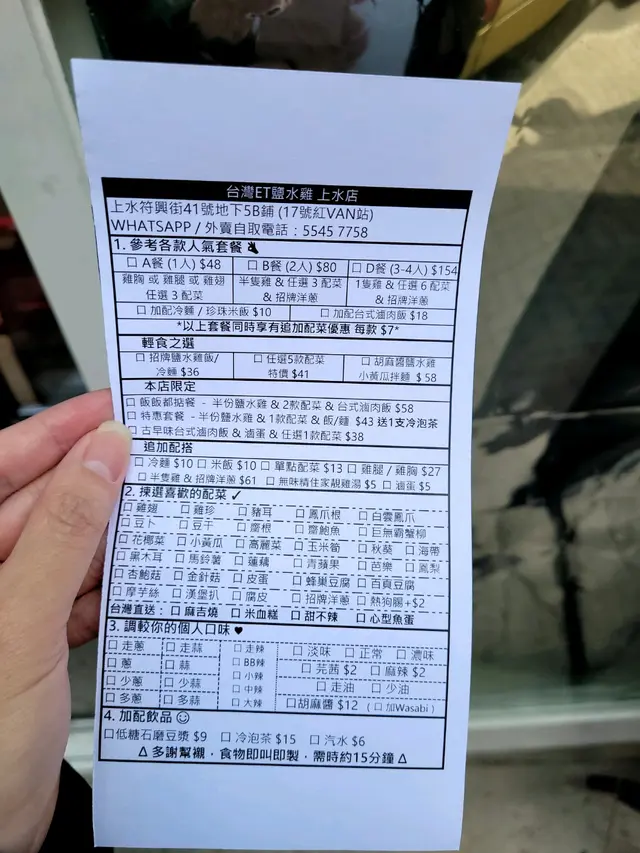 台灣ET鹽水雞 上水店
上水符興街41號地下5B鋪 (17號紅VAN站)
WHATSAPP / 外賣自取電話 : 5545 7758
1. 參考各款人氣套餐
□ A餐 (1人) $48 □ B餐 (2人) $80 □ D餐 (3-4人) $154
雞胸 或 雞腿 或 雞翅 半隻雞 & 任選 3 配菜 1隻雞 & 任選 6 配菜
任選 3 配菜 & 招牌洋蔥 & 招牌洋蔥
□ 加配冷麵 / 珍珠米飯 $10 □ 加配台式滷肉飯 $18
*以上套餐同時享有追加配菜優惠 每款 $7*
輕食之選
□ 招牌鹽水雞飯/ □ 任選5款配菜 □ 胡麻醬鹽水雞
冷麵 $36 特價 $41 小黃瓜拌麵 $ 58
本店限定
□ 飯飯都掂餐 - 半份鹽水雞 & 2款配菜 & 台式滷肉飯 $58
□ 特惠套餐 - 半份鹽水雞 & 1款配菜 & 飯/麵 $43 送1支冷泡茶
□ 古早味台式滷肉飯 & 滷蛋 & 任選1款配菜 $38
追加配搭
□ 冷麵 $10 □ 米飯 $10 □ 單點配菜 $13 □ 雞腿 / 雞胸 $27
□ 半隻雞 & 招牌洋蔥 $61 □ 無味精住家靚雞湯 $5 □ 滷蛋 $5
2. 揀選喜歡的配菜 ✓
□ 雞翅 □ 雞珍 □ 豬耳 □ 鳳爪根 □ 白雲鳳爪
□ 豆卜 □ 豆干 □ 齋根 □ 齋鮑魚 □ 巨無霸蟹柳
□ 花椰菜 □ 小黃瓜 □ 高麗菜 □ 玉米筍 □ 秋葵 □ 海帶
□ 黑木耳 □ 馬鈴薯 □ 蓮藕 □ 青蘋果 □ 芭樂 □ 鳳梨
□ 杏鮑菇 □ 金針菇 □ 皮蛋 □ 蜂巢豆腐 □ 百頁豆腐
□ 摩芋絲 □ 漢堡扒 □ 腐皮 □ 招牌洋蔥 □ 熱狗腸+$2
台灣直送 : □ 麻吉燒 □ 米血糕 □ 甜不辣 □ 心型魚蛋
3. 調較你的個人口味 ♥
□ 走蔥 □ 走蒜 □ 走辣 □ 淡味 □ 正常 □ 濃味
□ 蔥 □ 蒜 □ BB辣 □ 芫茜 $2 □ 麻辣 $2
□ 少蔥 □ 少蒜 □ 小辣 □ 走油 □ 少油
□ 多蔥 □ 多蒜 □ 中辣 □ 大辣 □胡麻醬 $12 (□ 加Wasabi)
4. 加配飲品 ☺
□低糖石磨豆漿 $9 □ 冷泡茶 $15 □ 汽水 $6
Δ 多謝幫襯，食物即叫即製，需時約15分鐘 Δ